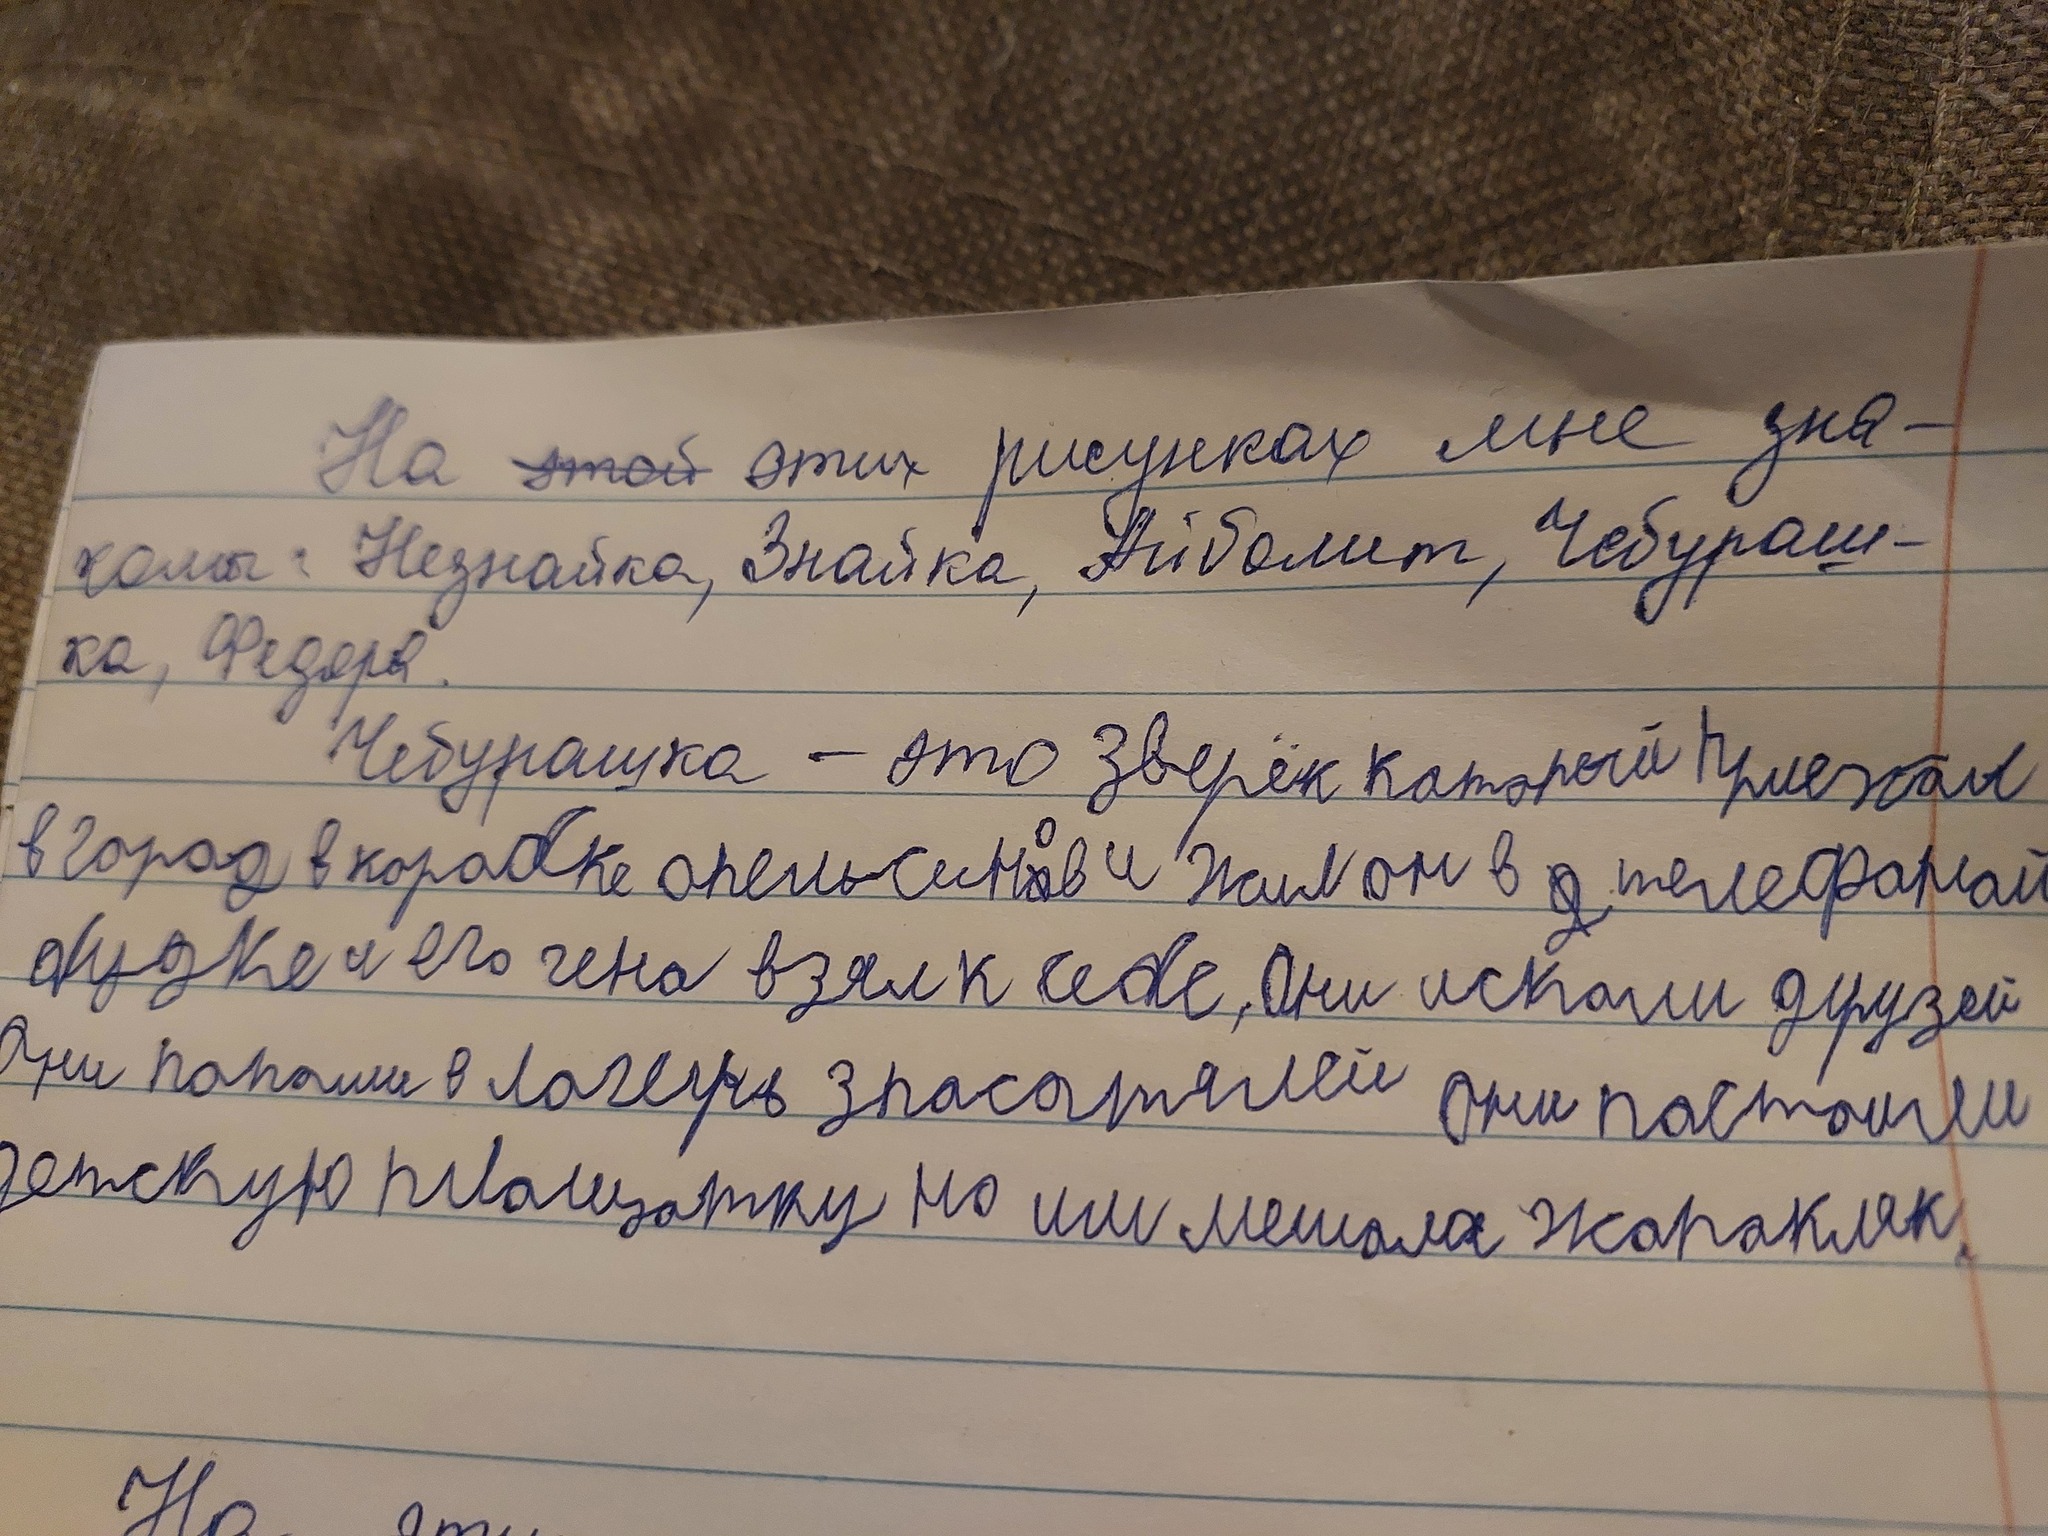 На этой этих рисунках мне зна-
комы: Незнайка, Знайка, Айболит, Чебураш-
ка, Федора.
Чебурашка - это зверёк каторый приехал
в город в коробке опельсинов и жил он в телефаной
будке и его гена взял к себе, Они искали друзей
Они попали в лагерь зпасатялей они пастоили
детскую площатку но им мешала жапокляк.
На эти